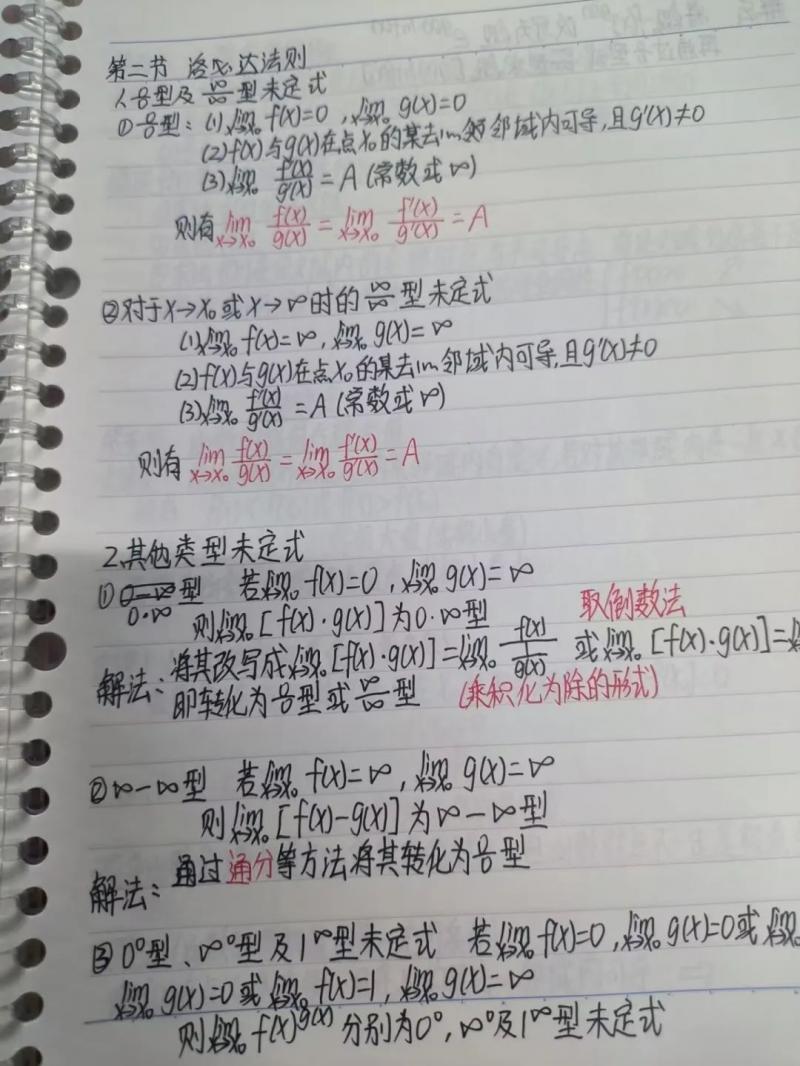 第二节 洛必达法则
1. 0/0型及∞/∞型未定式
① 0/0型: (1) lim x→x₀ f(x)=0, lim x→x₀ g(x)=0
(2) f(x)与g(x)在点x₀的某去心邻域内可导,且g'(x)≠0
(3) lim x→x₀ f'(x)/g'(x) = A (常数或∞)
则有 lim x→x₀ f(x)/g(x) = lim x→x₀ f'(x)/g'(x) = A
② 对于x→x₀或x→∞时的∞/∞型未定式
(1) lim x→x₀ f(x)=∞, lim x→x₀ g(x)=∞
(2) f(x)与g(x)在点x₀的某去心邻域内可导,且g'(x)≠0
(3) lim x→x₀ f'(x)/g'(x) = A (常数或∞)
则有 lim x→x₀ f(x)/g(x) = lim x→x₀ f'(x)/g'(x) = A
2.其他类型未定式
① 0·∞型 若lim x→x₀ f(x)=0, lim x→x₀ g(x)=∞
则lim x→x₀ [f(x)·g(x)]为0·∞型 取倒数法
解法: 将其改写成lim x→x₀ [f(x)·g(x)] = lim x→x₀ f(x)/(1/g(x)) 或lim x→x₀ [f(x)·g(x)]=
即转化为0/0型或∞/∞型 (乘积化为除的形式)
② ∞-∞型 若lim x→x₀ f(x)=∞, lim x→x₀ g(x)=∞
则lim x→x₀ [f(x)-g(x)]为∞-∞型
解法: 通过通分等方法将其转化为0/0型
③ 0⁰型、∞⁰型及1^∞型未定式 若lim x→x₀ f(x)=0, lim x→x₀ g(x)=0或lim x→x₀
lim x→x₀ g(x)=0或lim x→x₀ f(x)=1, lim x→x₀ g(x)=∞
则lim x→x₀ f(x)^g(x) 分别为0⁰,∞⁰及1^∞型未定式